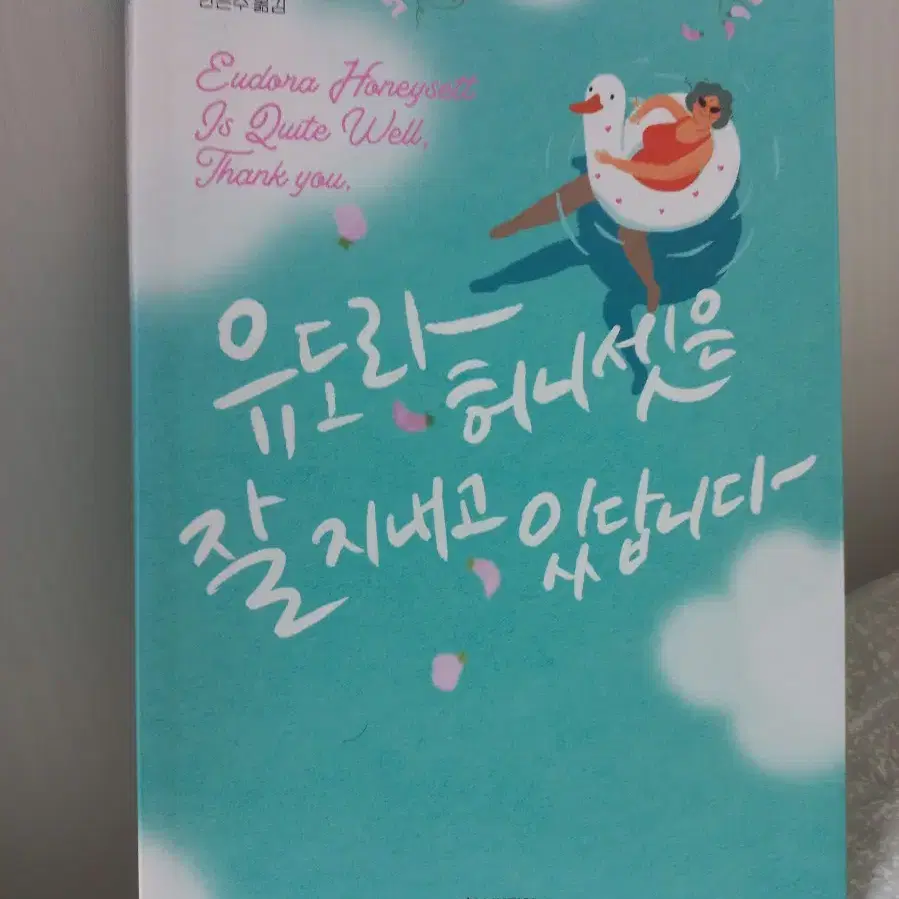 옮김
Eudora Honeysett
Is Quite Well,
Thank you,
유도라
허니셋은
잘 지내고 있답니다